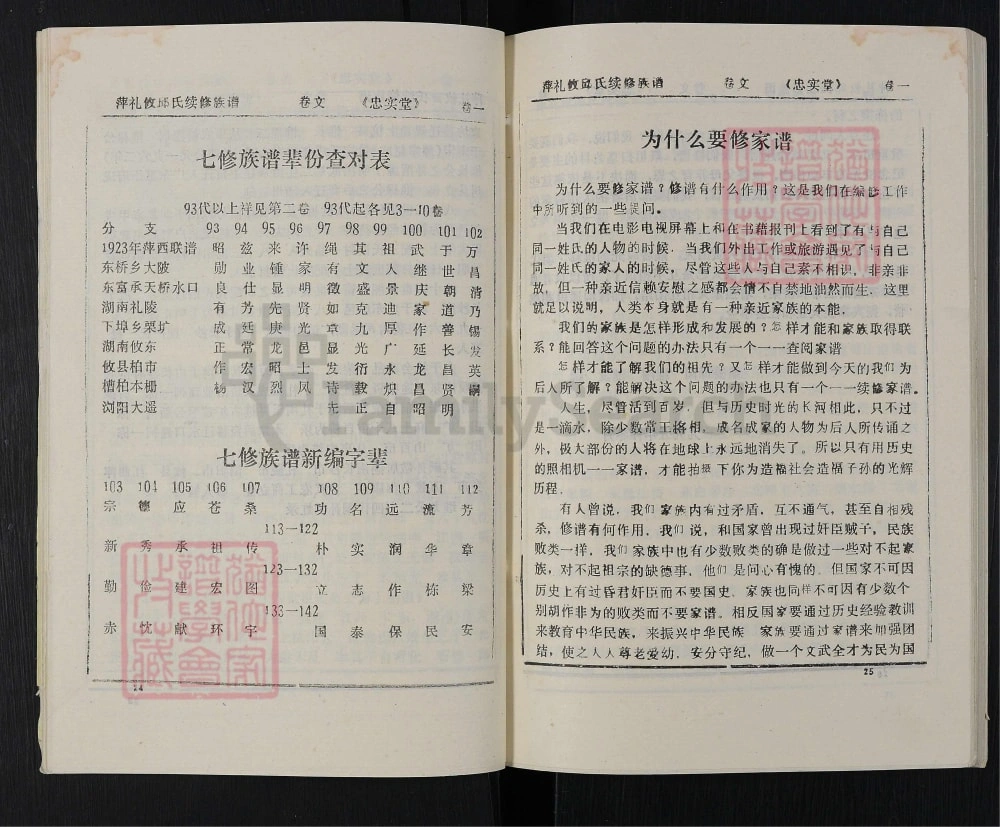 萍礼攸邱氏续修族谱 卷文 《忠实堂》 卷一
七修族谱辈份查对表
93代以上祥见第二卷 93代起各见3—10卷
分支 93 94 95 96 97 98 99 100 101 102
1923年萍西联谱 昭 兹 来 许 绳 其 祖 武 于 万
东桥乡大陂 勋 业 锺 家 有 文 人 继 世 昌
东富承天桥水口 良 仕 显 明 徵 盛 景 庆 朝 清
湖南礼陵 有 芳 先 贤 如 克 迪 家 道 乃
下埠乡栗圹 成 廷 庚 光 章 九 厚 作 善 锡
湖南攸东 正 常 龙 邑 显 光 广 延 长 发
攸县柏市 作 宏 昭 上 发 衍 永 龙 昌 英
槽柏本栅 杨 汉 烈 凤 诗 载 炽 昌 贤 嗣
浏阳大遥 先 正 自 昭 明
七修族谱新编字辈
103 104 105 106 107 108 109 110 111 112
宗 德 应 苍 桑 功 名 远 流 芳
113—122
新 秀 承 祖 传 朴 实 润 华 章
123—132
勤 俭 建 宏 图 立 志 作 栋 梁
133—142
赤 忱 献 环 宇 国 泰 保 民 安
24
萍礼攸邱氏续修族谱 卷文 《忠实堂》 卷一
为什么要修家谱
为什么要修家谱？修谱有什么作用？这是我们在编修工作
中所听到的一些提问。
当我们在电影电视屏幕上和在书籍报刊上看到了有与自己
同一姓氏的人物的时候，当我们外出工作或旅游遇见了与自己
同一姓氏的家人的时候，尽管这些人与自己素不相识，非亲非
故，但一种亲近信赖安慰之感都会情不自禁地油然而生。这里
就足以说明，人类本身就是有一种亲近家族的本能。
我们的家族是怎样形成和发展的？怎样才能和家族取得联
系？能回答这个问题的办法只有一个——查阅家谱
怎样才能了解我们的祖先？又怎样才能做到今天的我们为
后人所了解？能解决这个问题的办法也只有一个——续修家谱。
人生，尽管活到百岁，但与历史时光的长河相此，只不过
是一滴水，除少数常王将相，成名成家的人物为后人所传诵之
外，极大部份的人将在地球上永远地消失了。所以只有用历史
的照相机——家谱，才能拍摄下你为造福社会造福子孙的光辉
历程。
有人曾说，我们家族内有过矛盾，互不通气，甚至自相残
杀，修谱有何作用，我们说，和国家曾出现过奸臣贼子，民族
败类一样，我们家族中也有少数败类的确是做过一些对不起家
族，对不起祖宗的缺德事，他们是问心有愧的。但国家不可因
历史上有过昏君奸臣而不要国史，家族也同样不可因有少数个
别胡作非为的败类而不要家谱。相反国家要通过历史经验教训
来教育中华民族，来振兴中华民族 家族要通过家谱来加强团
结，使之人人尊老爱幼，安分守纪，做一个文武全才为民为国
25
FamilySearch